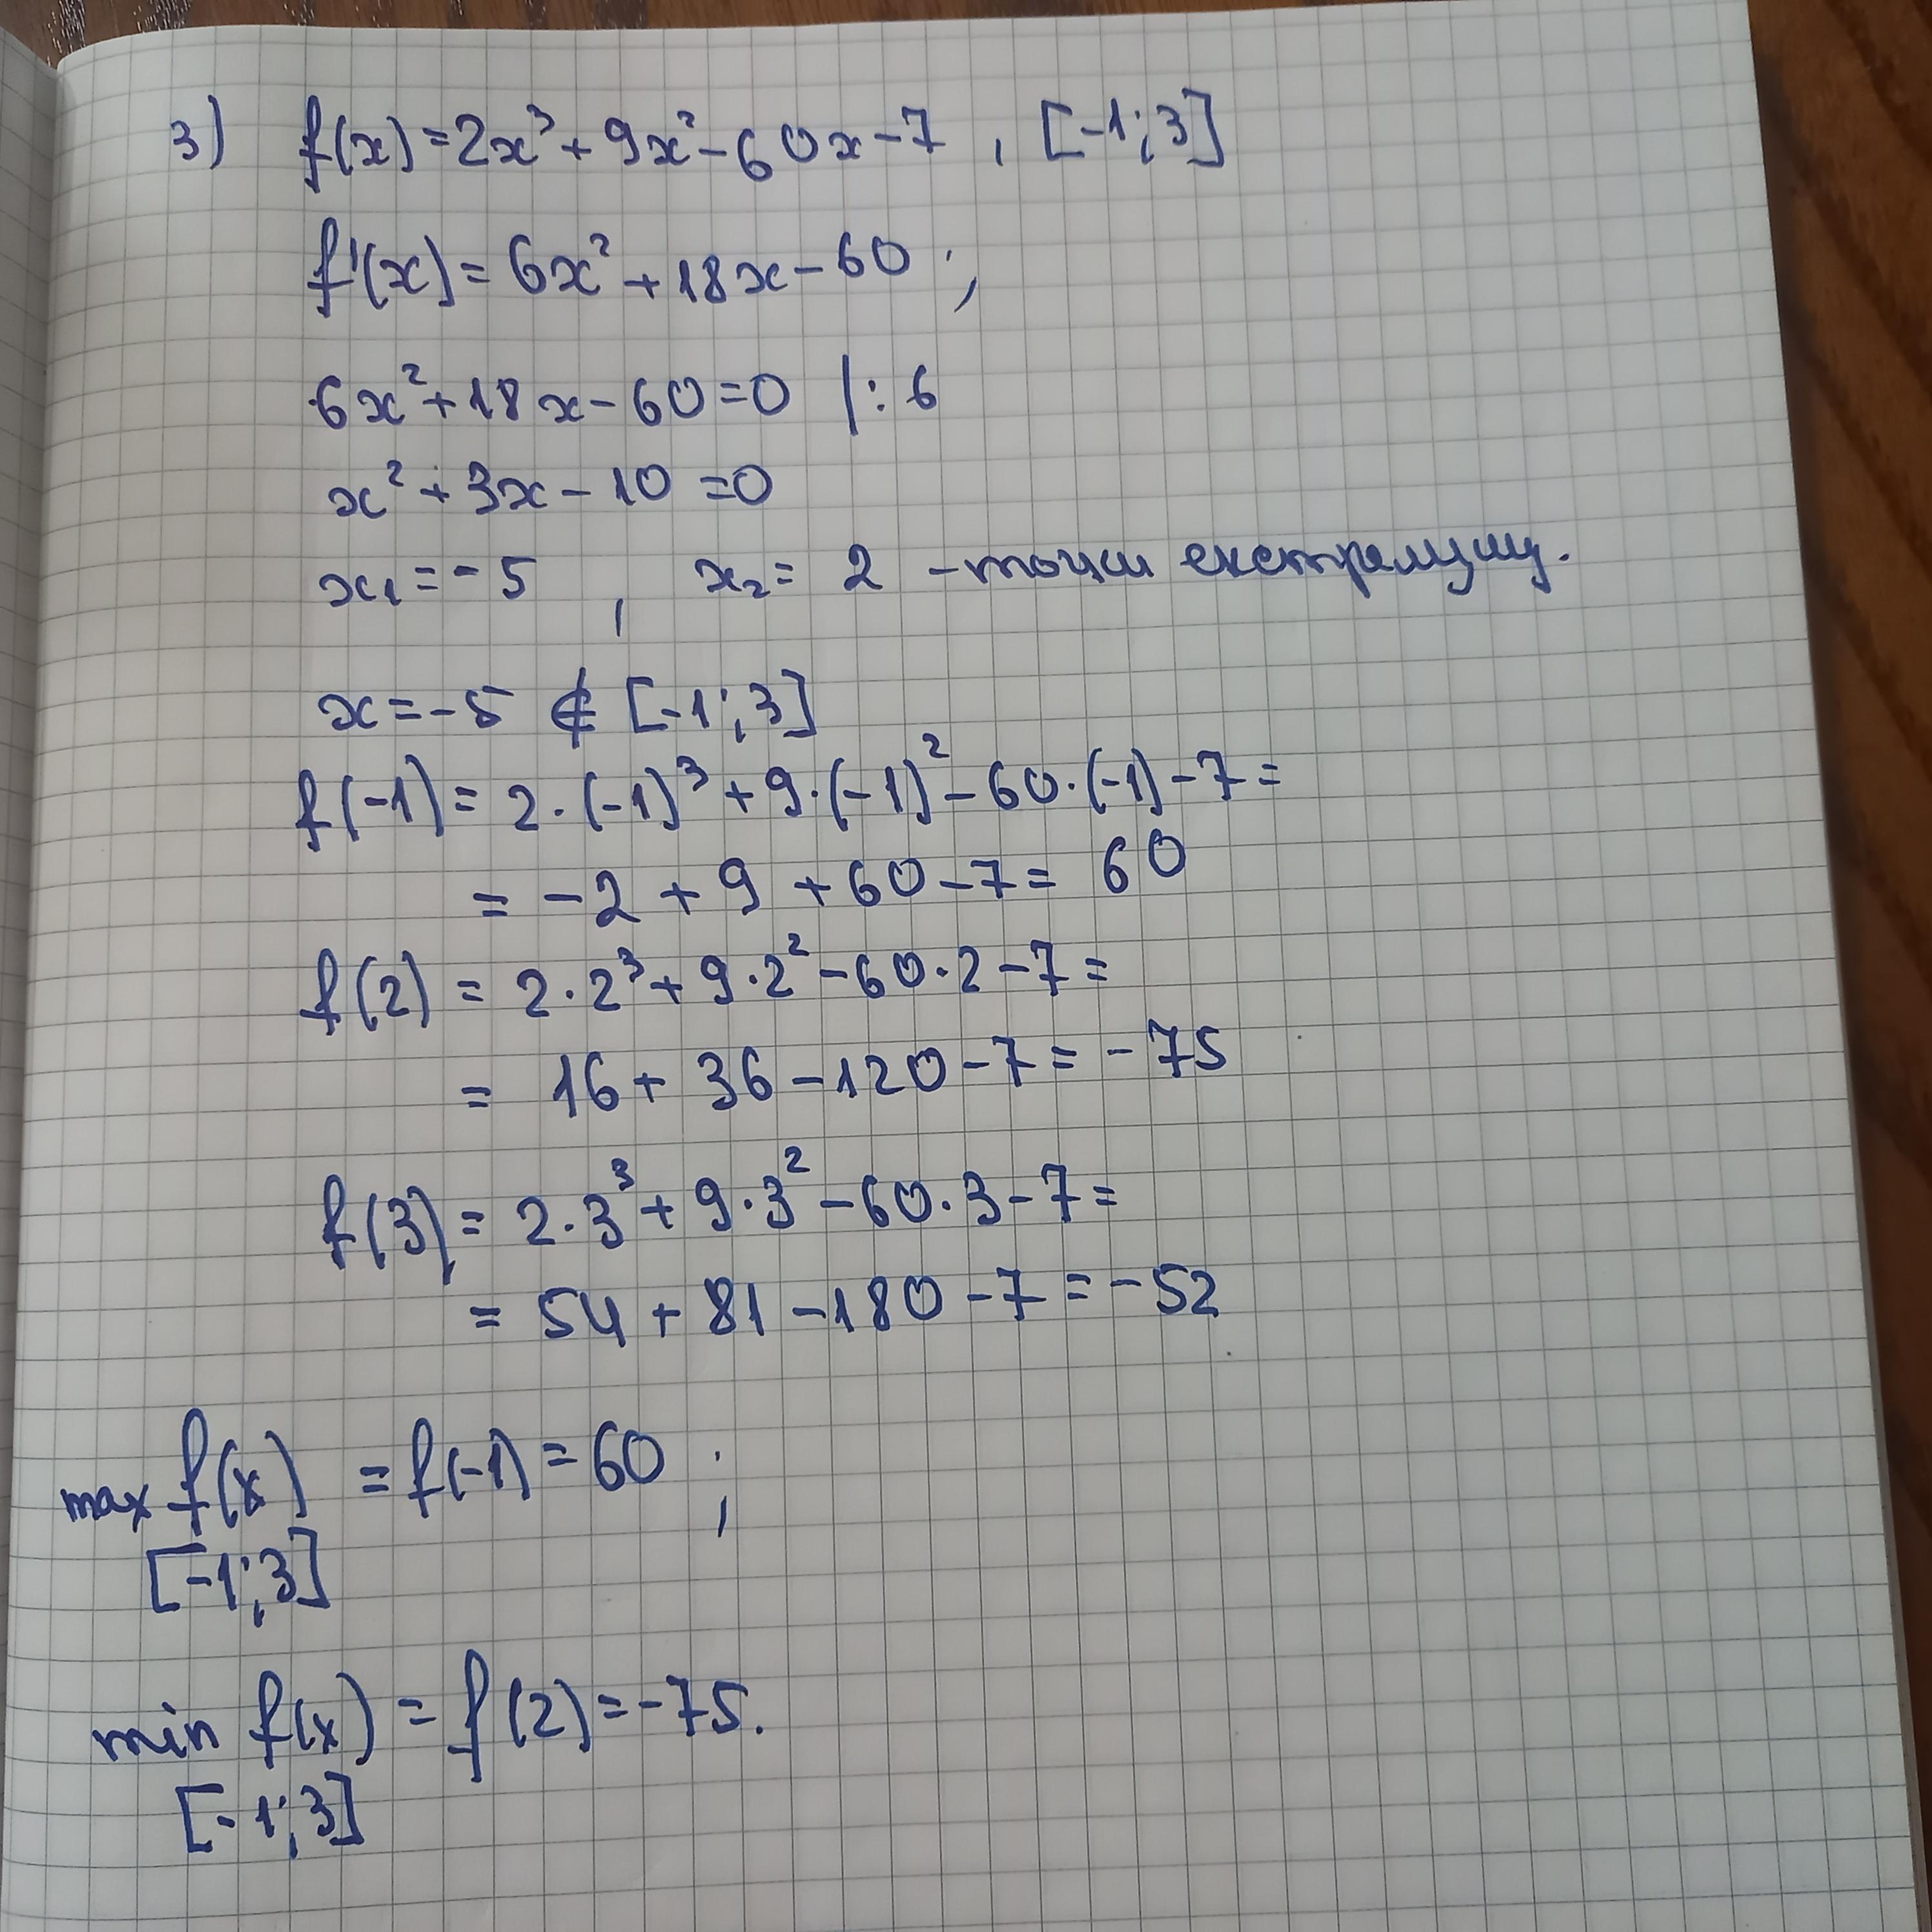 3) f(x)=2x³+9x²-60x-7 , [-1;3]
f'(x)=6x²+18x-60 ;
6x²+18x-60=0 |:6
x²+3x-10=0
x₁=-5 , x₂=2 -точки екстремуму.
x=-5 ∉ [-1;3]
f(-1)=2·(-1)³+9·(-1)²-60·(-1)-7=
= -2+9+60-7=60
f(2)=2·2³+9·2²-60·2-7=
= 16+36-120-7=-75
f(3)=2·3³+9·3²-60·3-7=
= 54+81-180-7=-52
max f(x) =f(-1)=60 ;
[-1;3]
min f(x)=f(2)=-75.
[-1;3]